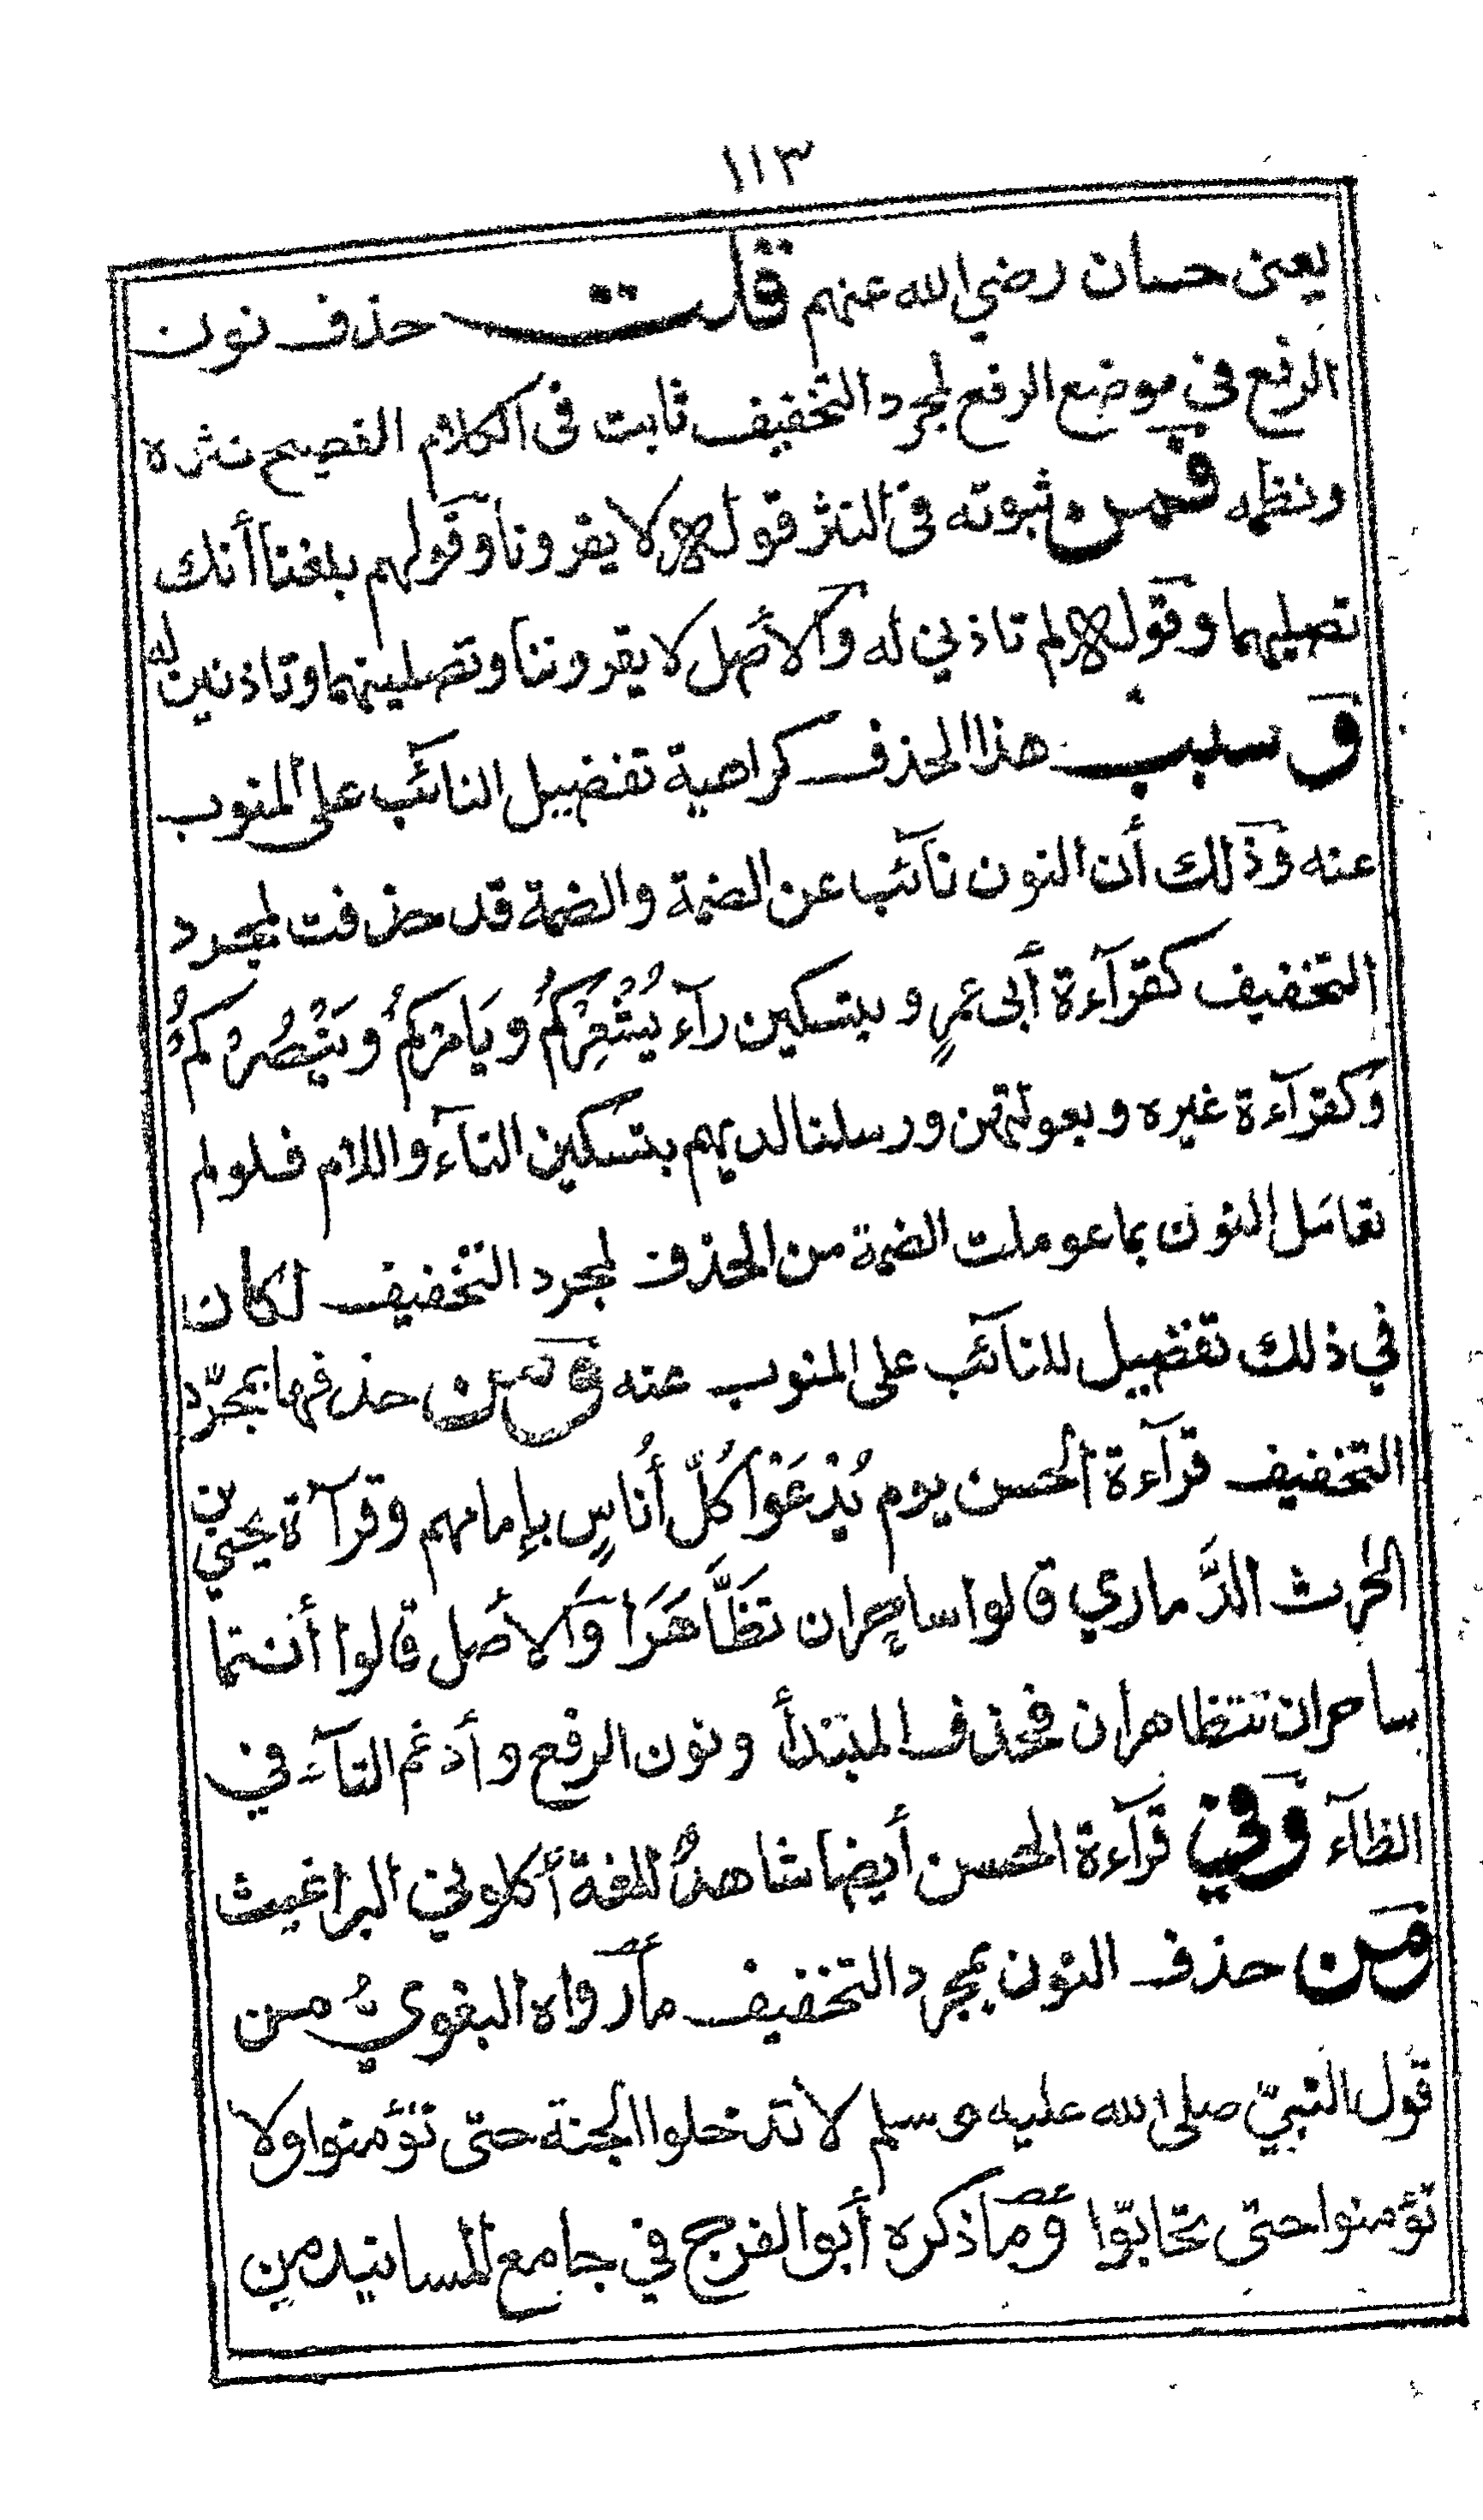 ١١٣
يعنى حسان رضي الله عنهم قلت حذف نون
الرفع في موضع الرفع لمجرد التخفيف ثابت فى الكلام الفصيح نثره
ونظمه فمن ثبوته فى النثر قولهم لا يقرونا وقولهم بلغنا أنك
تصليهما وقولهم لم تاذني له والأصل لا يقروننا وتصلينهما وتاذنين له
وسبب هذا الحذف كراهية تفضيل النائب على المنوب
عنه وذلك أن النون نآئب عن الضمة والضمة قد حذفت لمجرد
التخفيف كقرآءة أبى عمرٍو بتسكين رآء يُشْعِرْكُمُ ويَامرْكمُ ويَنْصُرْكمُ
وكقرآءة غيره وبعولتهن ورسلنا لديهم بتسكين التآء واللام فلولم
تعامَل النون بما عوملت الضمة من الحذف لمجرد التخفيف لكان
في ذلك تفضيل للنآئب على المنوب عنه ومن حذفها بمجرّد
التخفيف قرآءة الحسن يوم يُدْعَوْا كُلّ أُناسٍ بإمامهم وقرآءة يحيى بن
الحرث الذَّماري قالوا ساحِران تظَّاهَرَا والأصل قالوا أنتما
ساحران تتظاهران فحذف المبتدأ ونون الرفع وأدغم التآء في
الظآء وفي قرآءة الحسن أيضا شاهدٌ للغة أكلوني البراغيث
ومن حذف النون بمجرد التخفيف مارواه البغويُّ من
قول النبيّ صلى الله عليه وسلم لا تدخلوا الجنة حتى تؤمنوا ولا
تؤمنوا حتى تحابّوا وما ذكره أبو الفرج في جامع المسانيد من